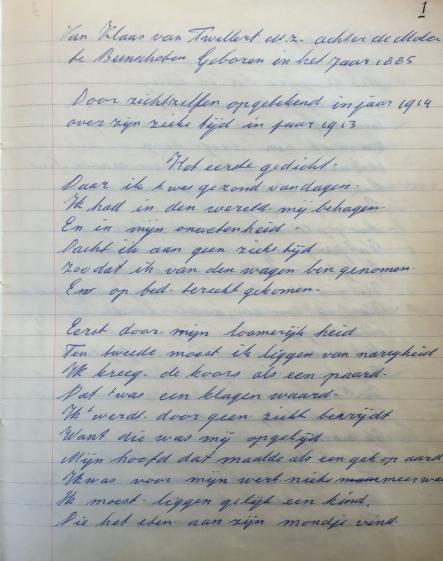 1
Van Klaas van Twillert Mz. achter de Molen
te Bunschoten Geboren in het Jaar 1885
Door zichtzelfen opgetekend in jaar 1914
over zijn zieke tijd in jaar 1913
Het eerste gedicht.
Daar ik t was gezond van dagen.
Ik had in den wereld mij behagen
En in mijn onwetenheid.
Dacht ik aan geen zieke tijd
Zoo dat ik van den wagen ben genomen.
En op bed. terecht gekomen.
Eerst door mijn loomerijkheid
Ten tweede moest ik liggen van narigheid
Ik kreeg. de koors als een paard.
Dat 't was een klagen waard.
Ik werd. door geen zicht bevrijdt
Want die was mij opgelijd
Mijn hoofd dat maalde als een gek op aard
Ik was voor mijn werk niets meer
Ik moest liggen gelijk een kind.
Die het eten aan zijn mondje vind.